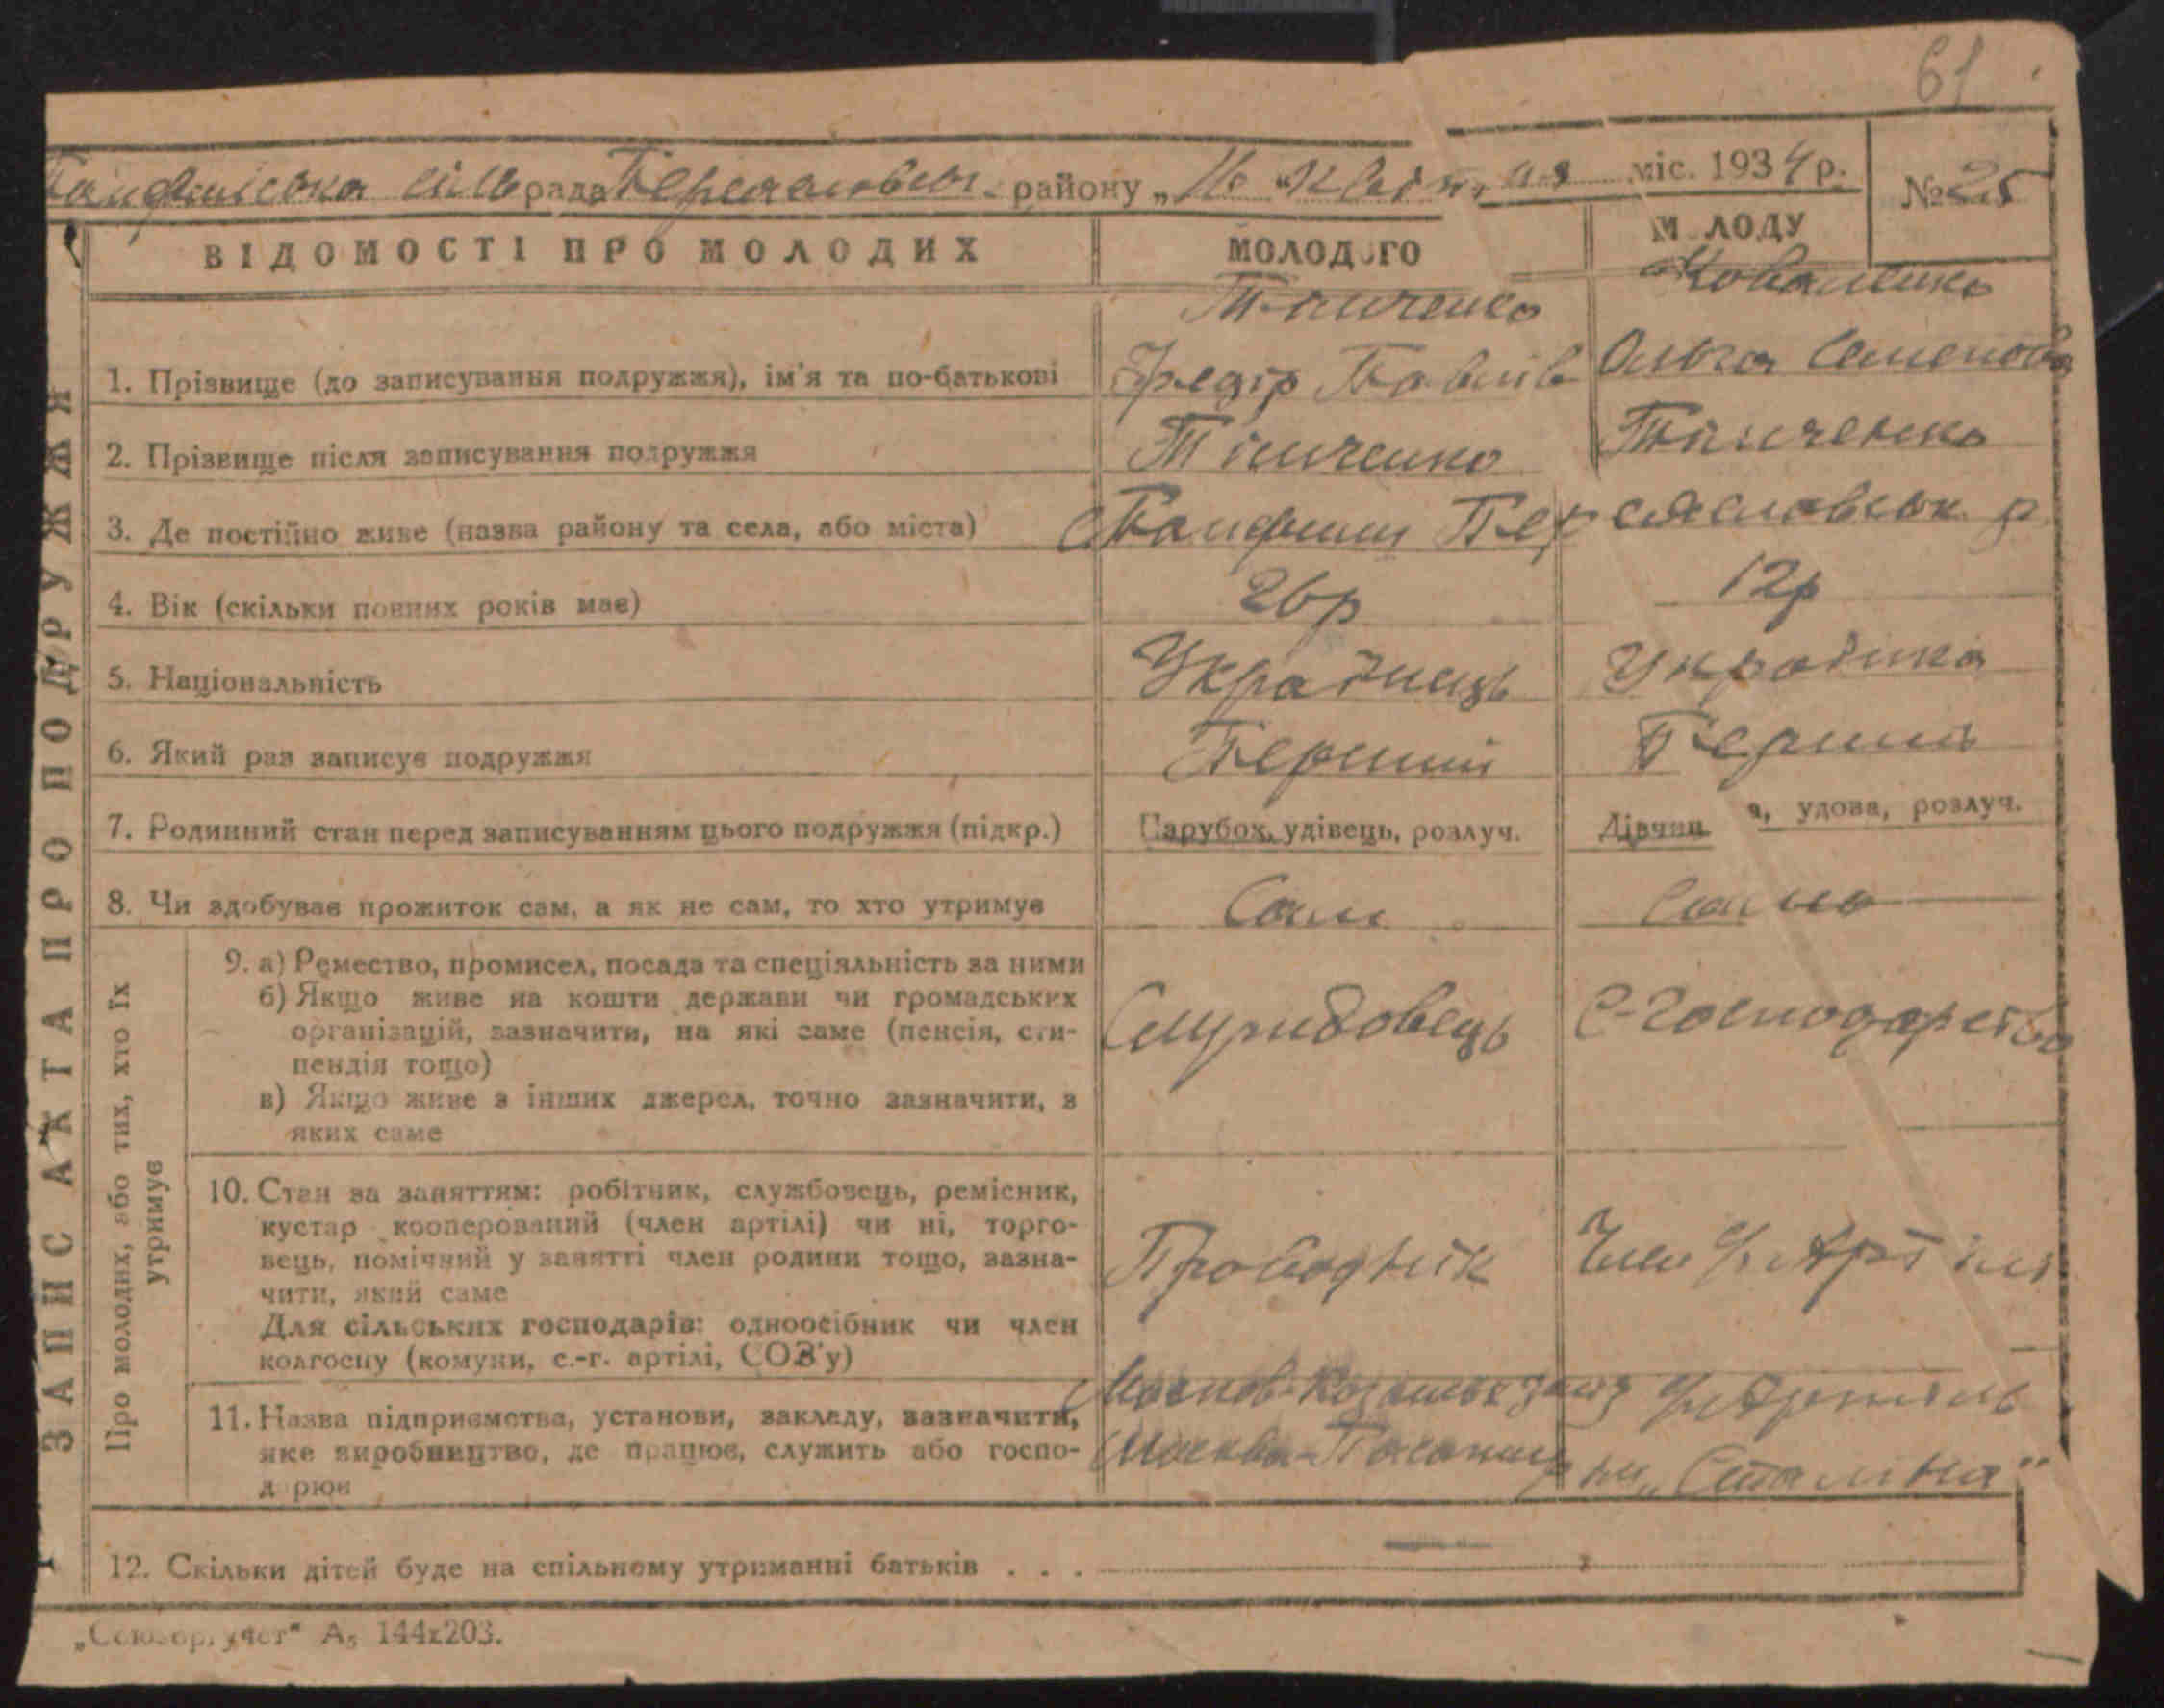 61
Панфильська сільрада Переяславськ. району „16“ Квітня міс. 1934 р.
№ 25
ВІДОМОСТІ ПРО МОЛОДИХ
МОЛОДОГО
МОЛОДУ
1. Прізвище (до записування подружжя), ім'я та по-батькові
Федір Павлів
Коваленко
Ольга Семенова
2. Прізвище після записування подружжя
3. Де постійно живе (назва району та села, або міста)
Переяславськ р
4. Вік (скільки повних років має)
26р
12р
5. Національність
Українець
Українка
6. Який раз записує подружжя
Перший
Перший
7. Родинний стан перед записуванням цього подружжя (підкр.)
Парубок, удівець, розлуч.
Дівчина, удова, розлуч.
8. Чи здобуває прожиток сам, а як не сам, то хто утримує
Сам
Сама
ЗАПИС АКТА ПРО ПОДРУЖЖЯ
Про молодих, або тих, хто їх утримує
9. а) Ремество, промисел, посада та спеціяльність за ними
б) Якщо живе на кошти держави чи громадських
організацій, зазначити, на які саме (пенсія, сти-
пендія тощо)
в) Якщо живе з інших джерел, точно зазначити, з
яких саме
С-господарство
10. Стан за заняттям: робітник, службовець, ремісник,
кустар кооперований (член артілі) чи ні, торго-
вець, помічний у занятті член родини тощо, зазна-
чити, який саме
Для сільських господарів: одноосібник чи член
колгоспу (комуни, с.-г. артілі, СОЗ'у)
Проводнік
Член Артілі
11. Назва підприємства, установи, закладу, зазначити,
яке виробництво, де працює, служить або госпо-
дарює
Москва
Артіль
„Сталіна"
12. Скільки дітей буде на спільному утриманні батьків . . .
—
„Союзоргучет" А5 144х203.